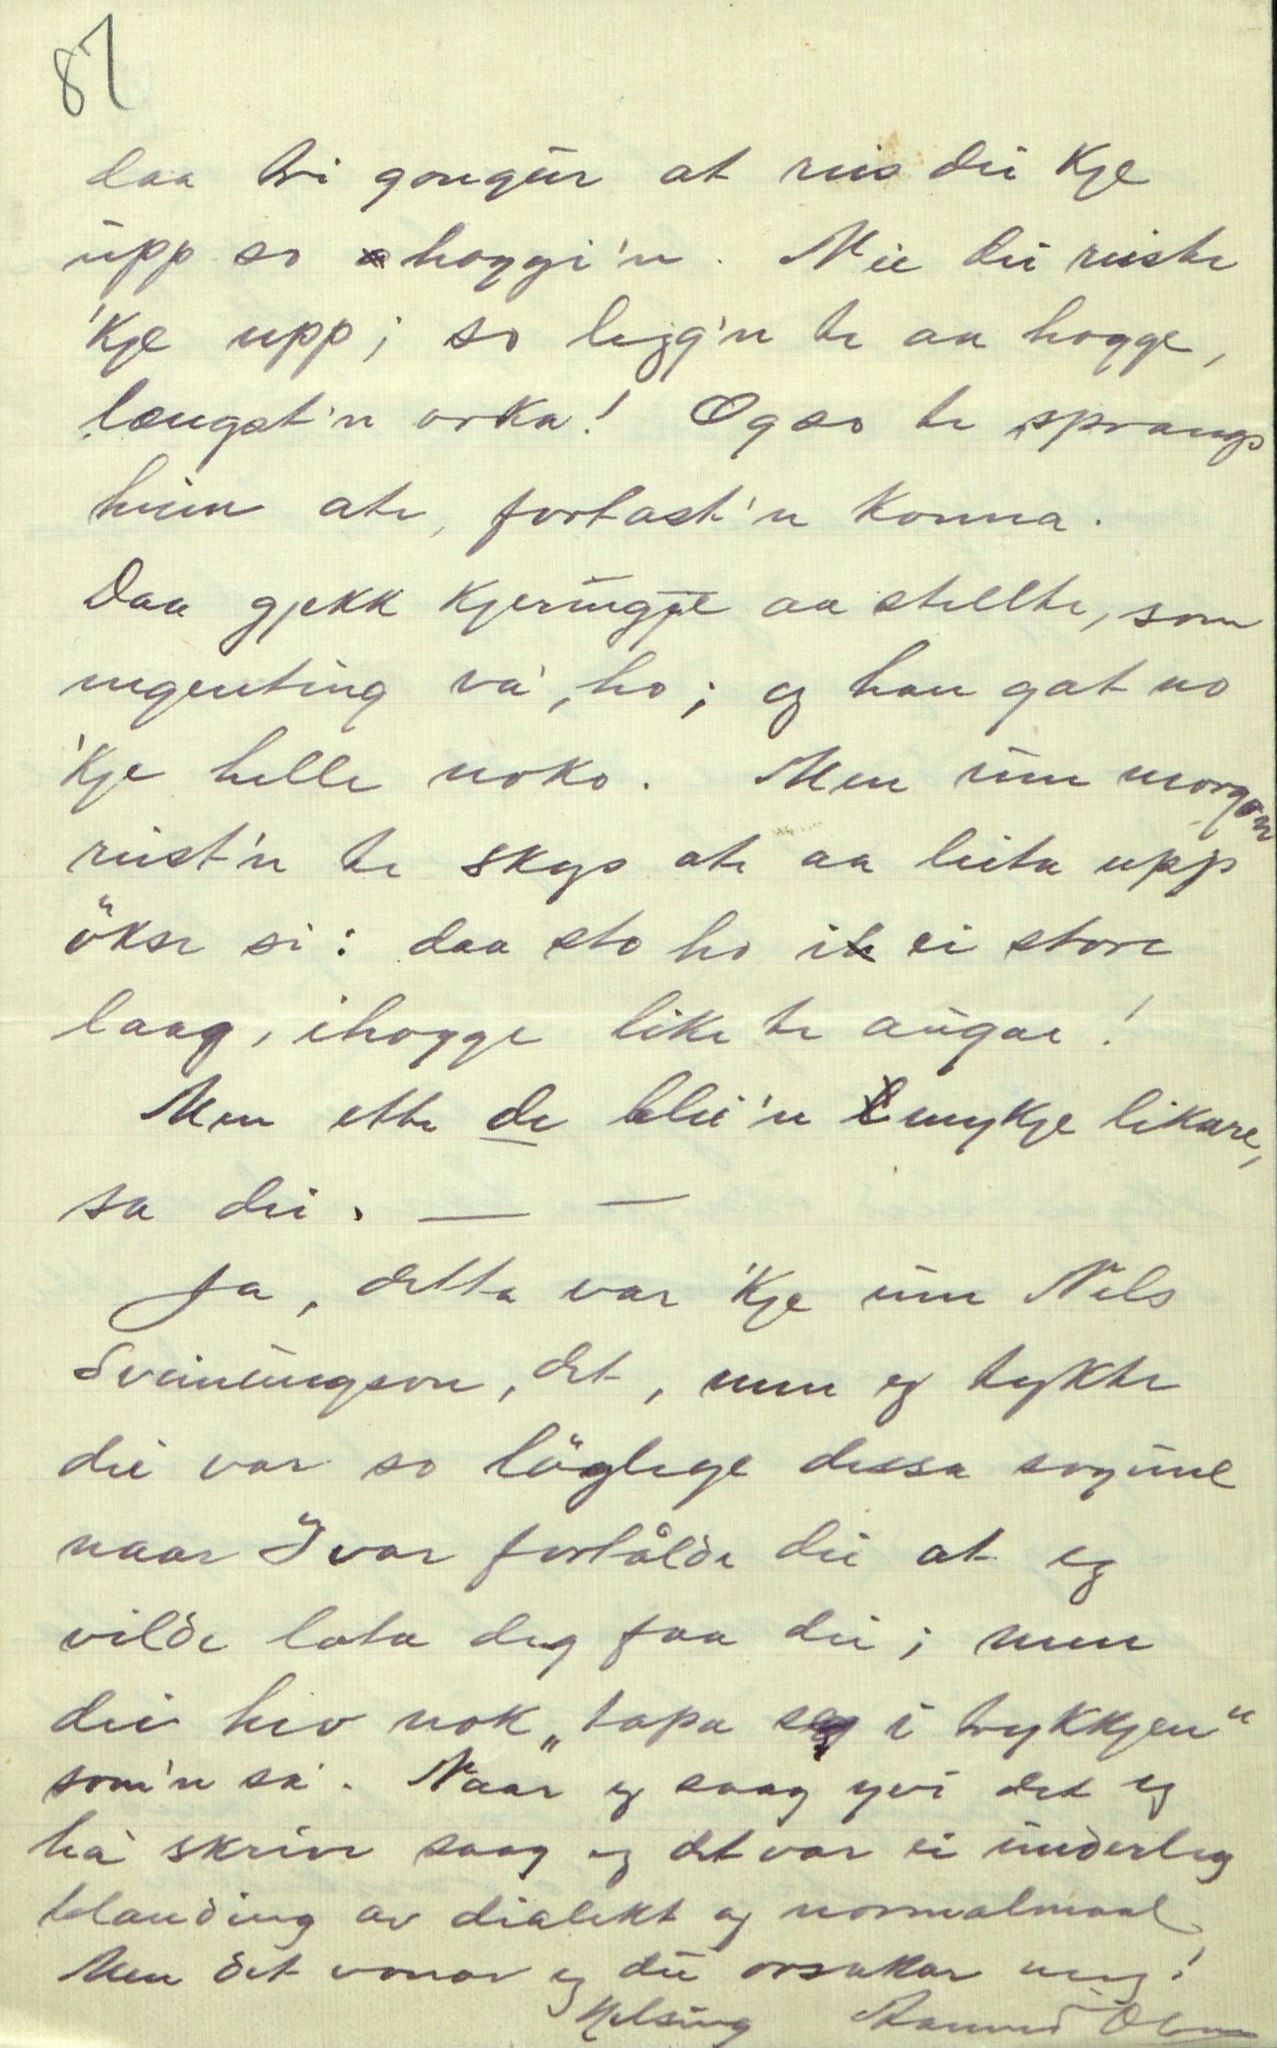 87
daa tri gongūr at reis dū kje
ūpp so hoggi'n. Nei dū reiste
'kje upp; so legg'n te aa hogge,
længst'n orka! Og so te sprangs
heim ate, fortast'n konna.
Daa gjekk kjeringje aa stellte, som
ingenting va', ho; og han gat no
'kje helle noko. Men ūm morgon
reist'n te skogs ate aa leita upp
ökse si: daa sto ho i ei store
laag, ihogge like te augae!
Men ette de blei'n mykje likare,
sa dei. — —
Ja, detta var 'kje ūm Nils
Sveinūngson, det, men eg tykte
dei var so löglege dessa sogūne
naar Ivar fortålde dei at eg
vilde lata deg faa dei; men
dei hev nok „tapa seg i trykkjen"
som'n sa'. Naar eg saag yvi det eg
ha' skrive saag eg det var ei ūnderleg
blanding av dialekt og normalmaal
Men det vonar eg dū orsakar meg!
Helsing